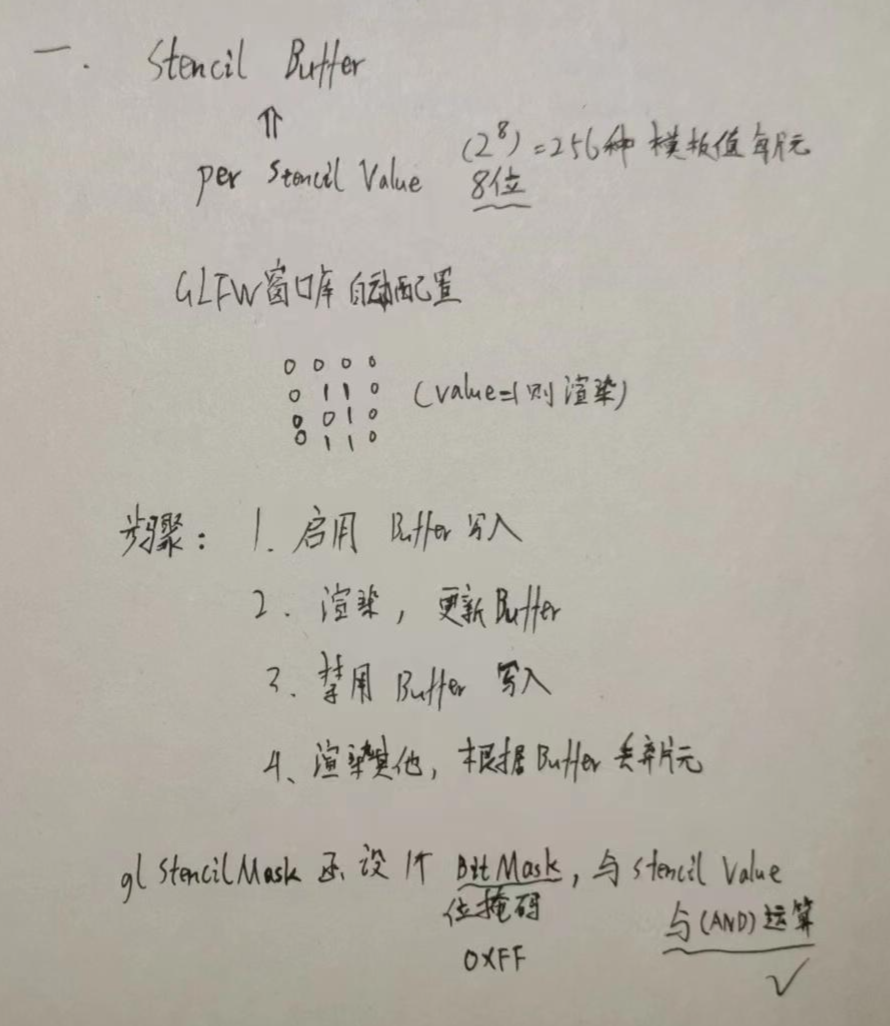 一. Stencil Buffer
⇑
per Stencil Value (2^8) = 256种 模板值 每片元
8位
GLFW窗口库 自动配置
0 0 0 0
0 1 1 0 (value=1则渲染)
0 0 1 0
0 1 1 0
步骤: 1. 启用 Buffer 写入
2. 渲染, 更新Buffer
3. 禁用 Buffer 写入
4、渲染其他, 根据Buffer 丢弃片元
glStencilMask 还 设1个 BitMask, 与 stencil Value
位掩码 与(AND)运算
0XFF ✓